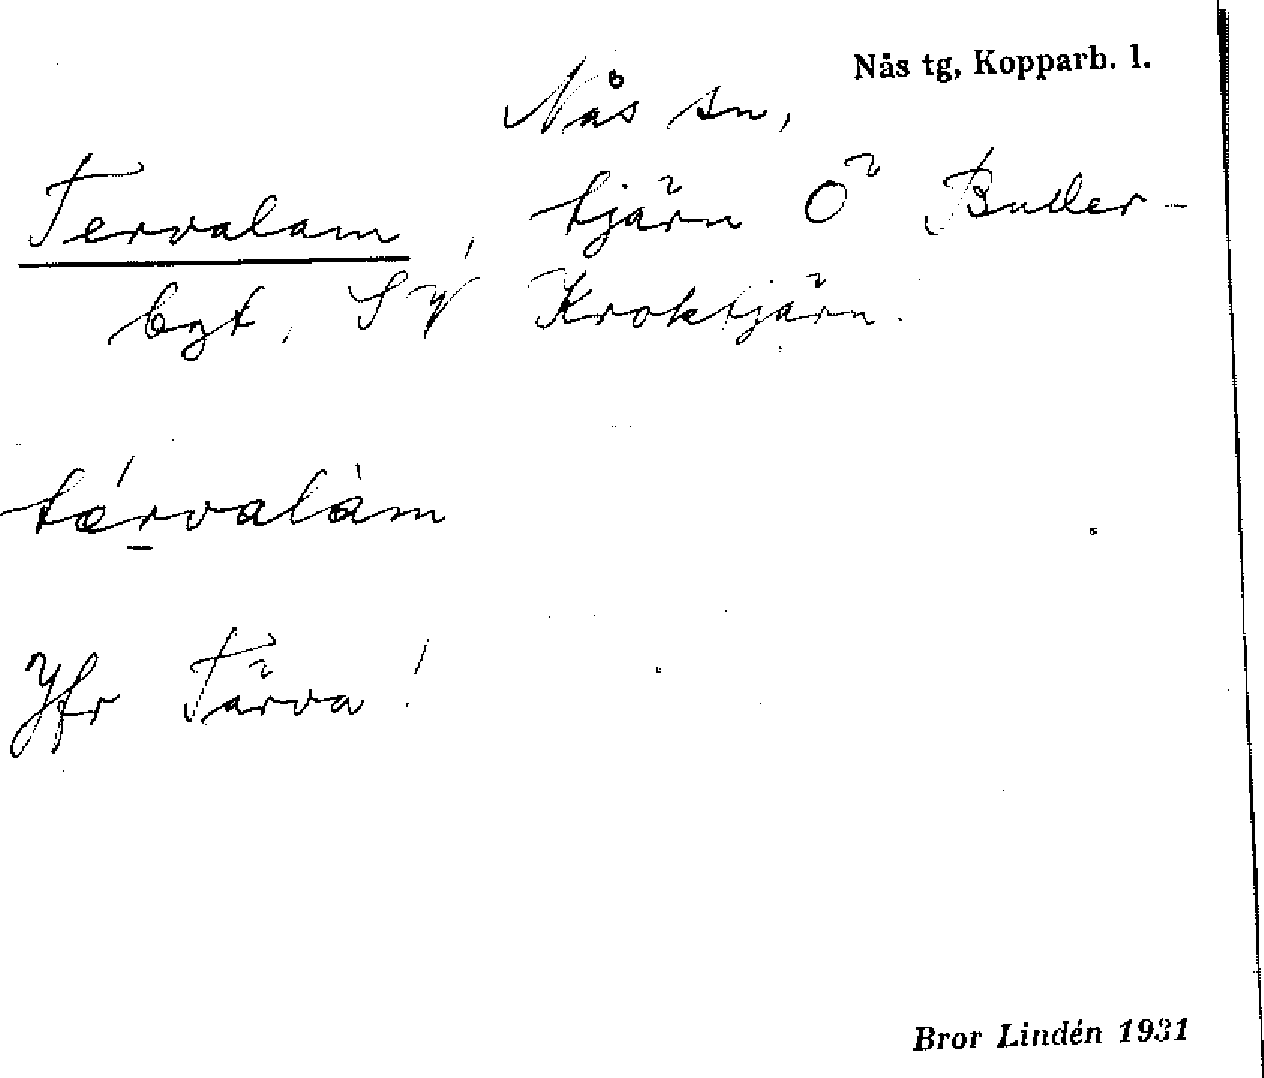 Nås tg, Kopparb. l.
Nås sn,
Tervalam, tjärn Ö Buller-
bgt, SV Kroktjärn.
tǽrvalàm
Jfr Tärva!
Bror Lindén 1931